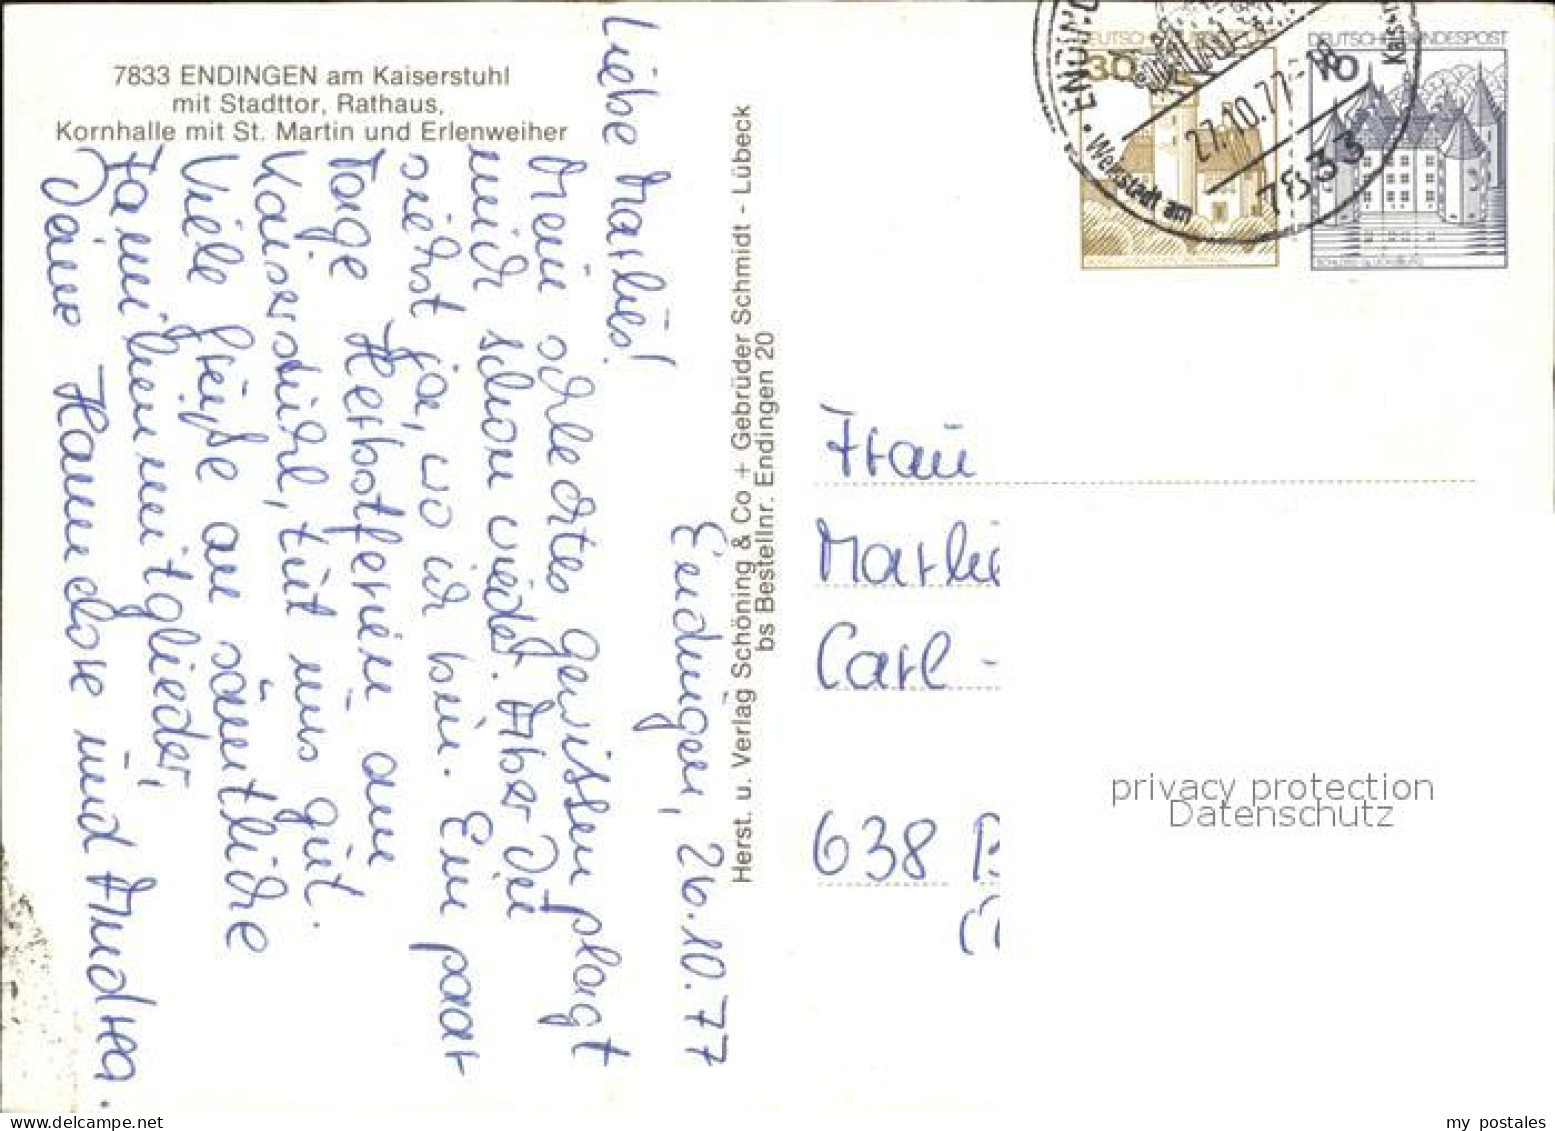 7833 ENDINGEN am Kaiserstuhl
mit Stadttor, Rathaus,
Kornhalle mit St. Martin und Erlenweiher
Endingen, 26.10.77
Liebe Marlies!
Mein schlechtes Gewissen plagt
mich schon wieder. Aber Du
siehst ja, wo ich bin. Ein paar
Tage Herbstferien am
Kaiserstuhl, tut uns gut.
Viele Grüße an sämtliche
Familienmitglieder,
Deine Hannelore und Andrea.
Herst. u. Verlag Schöning & Co + Gebrüder Schmidt - Lübeck
bs Bestellnr. Endingen 20
DEUTSCHE BUNDESPOST
30
DEUTSCHE BUNDESPOST
10
SCHLOSS GLÜCKSBURG
ENDINGEN
27.10.77-18
7833
Weinstadt am
Kaiserst
Frau
Marlie
Carl -
638 B
privacy protection
Datenschutz
my postales